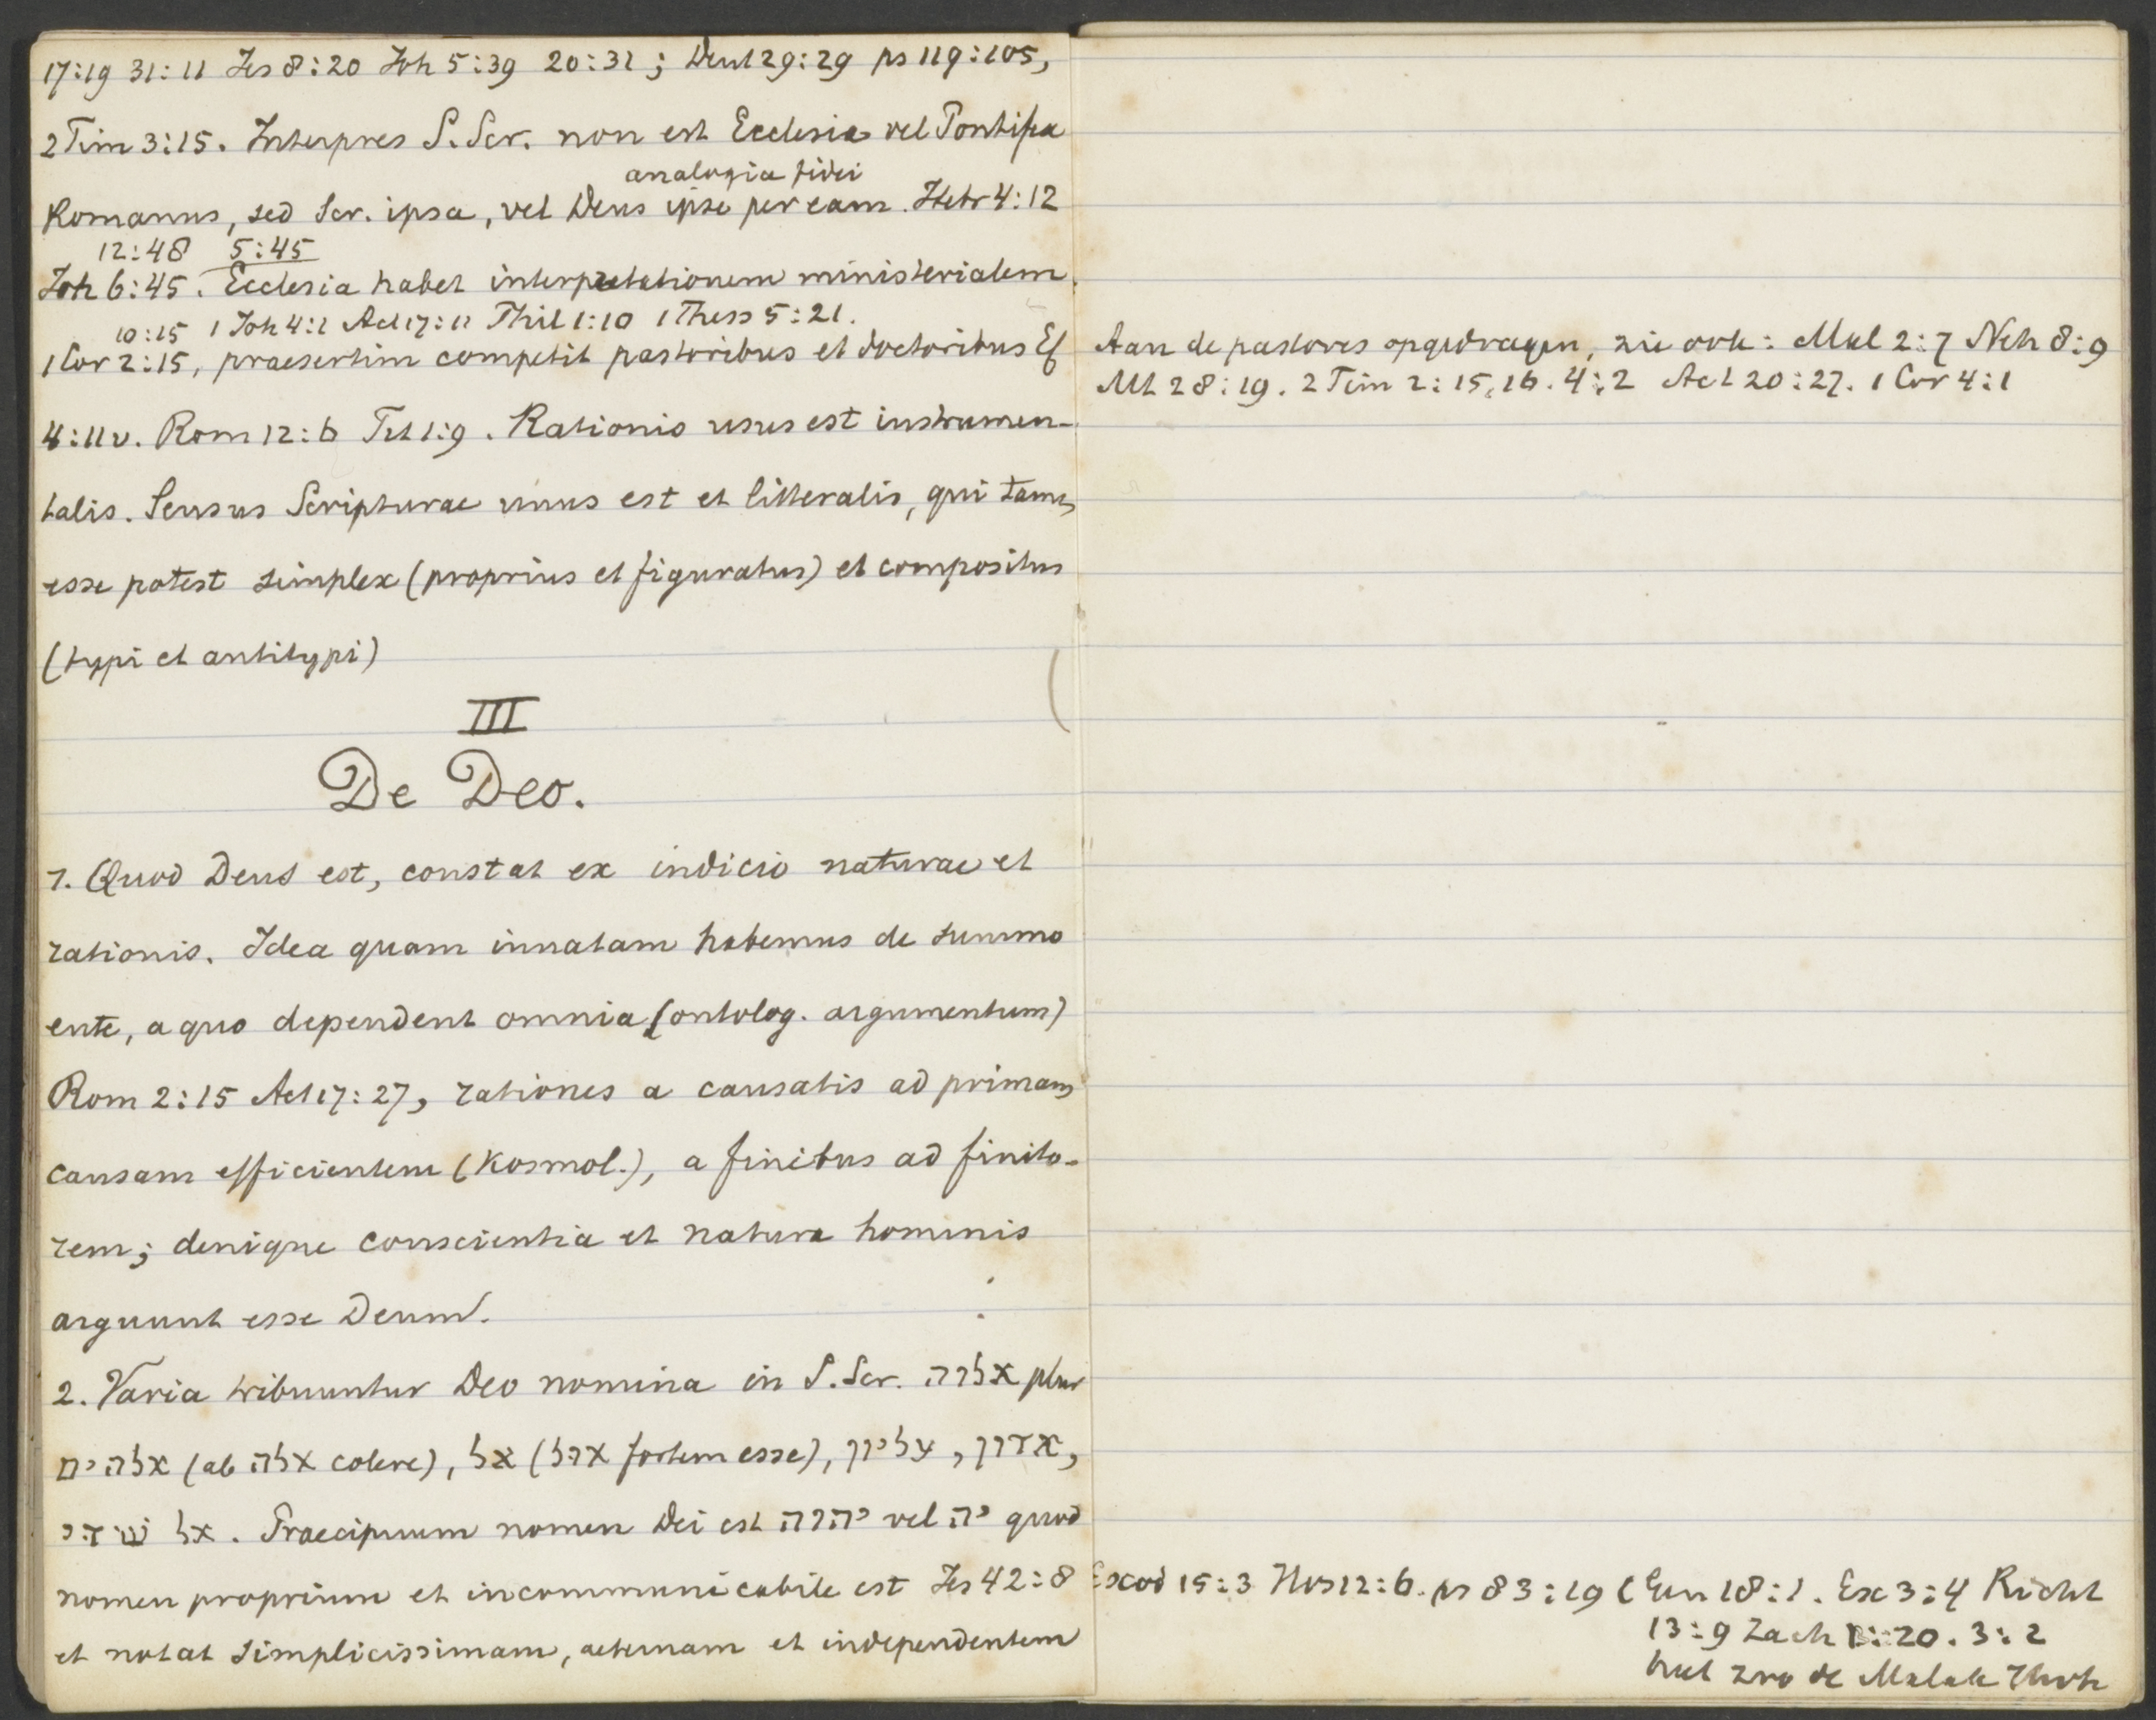 17:19 31:11 Jes 8:20 Joh 5:39 20:31; Deut 29:29 ps 119:105,
2 Tim 3:15. Interpres S. Scr. non est Ecclesia vel Pontifex
analogia fidei
Romanus, sed Scr. ipsa, vel Deus ipse per eam. Hebr 4:12
12:48 5:45
Joh 6:45. Ecclesia habet interpretationem ministerialem
10:15 1 Joh 4:1 Act 17:11 Phil 1:10 1 Thess 5:21.
1 Cor 2:15, praesertim competit pastoribus et doctoribus Ef
4:11 v. Rom 12:6 Tit 1:9. Rationis usus est instrumen-
talis. Sensus Scripturae unus est et litteralis, qui tamen
esse potest simplex (proprius et figuratus) et compositus
(typi et antitypi)
III
De Deo.
1. Quod Deus est, constat ex indicio naturae et
rationis. Idea quam innatam habemus de summo
ente, a quo dependent omnia (ontolog. argumentum)
Rom 2:15 Act 17:27, rationes a causatis ad primam
causam efficientem (Kosmol.), a finibus ad finito-
rem; denique conscientia et natura hominis
arguunt esse Deum.
2. Varia tribuuntur Deo nomina in S. Scr. אלוה plur
אלהים (ab אלה colere), אל (אול fortem esse), עליון, אדון,
אל שדי. Praecipuum nomen Dei est יהוה vel יה quod
nomen proprium et incommunicabile est Jes 42:8
et notat simplicissimam, aeternam et independentem
Aan de pastores opgedragen, zie ook: Mal 2:7 Neh 8:9
Mt 28:19. 2 Tim 2:15,16. 4:2 Act 20:27. 1 Cor 4:1
Exod 15:3 Hos 12:6. ps 83:19 (Gen 18:1. Ex 3:4 Richt
13:9 Zach 1:20. 3:2
zoo de Malak Jhvh